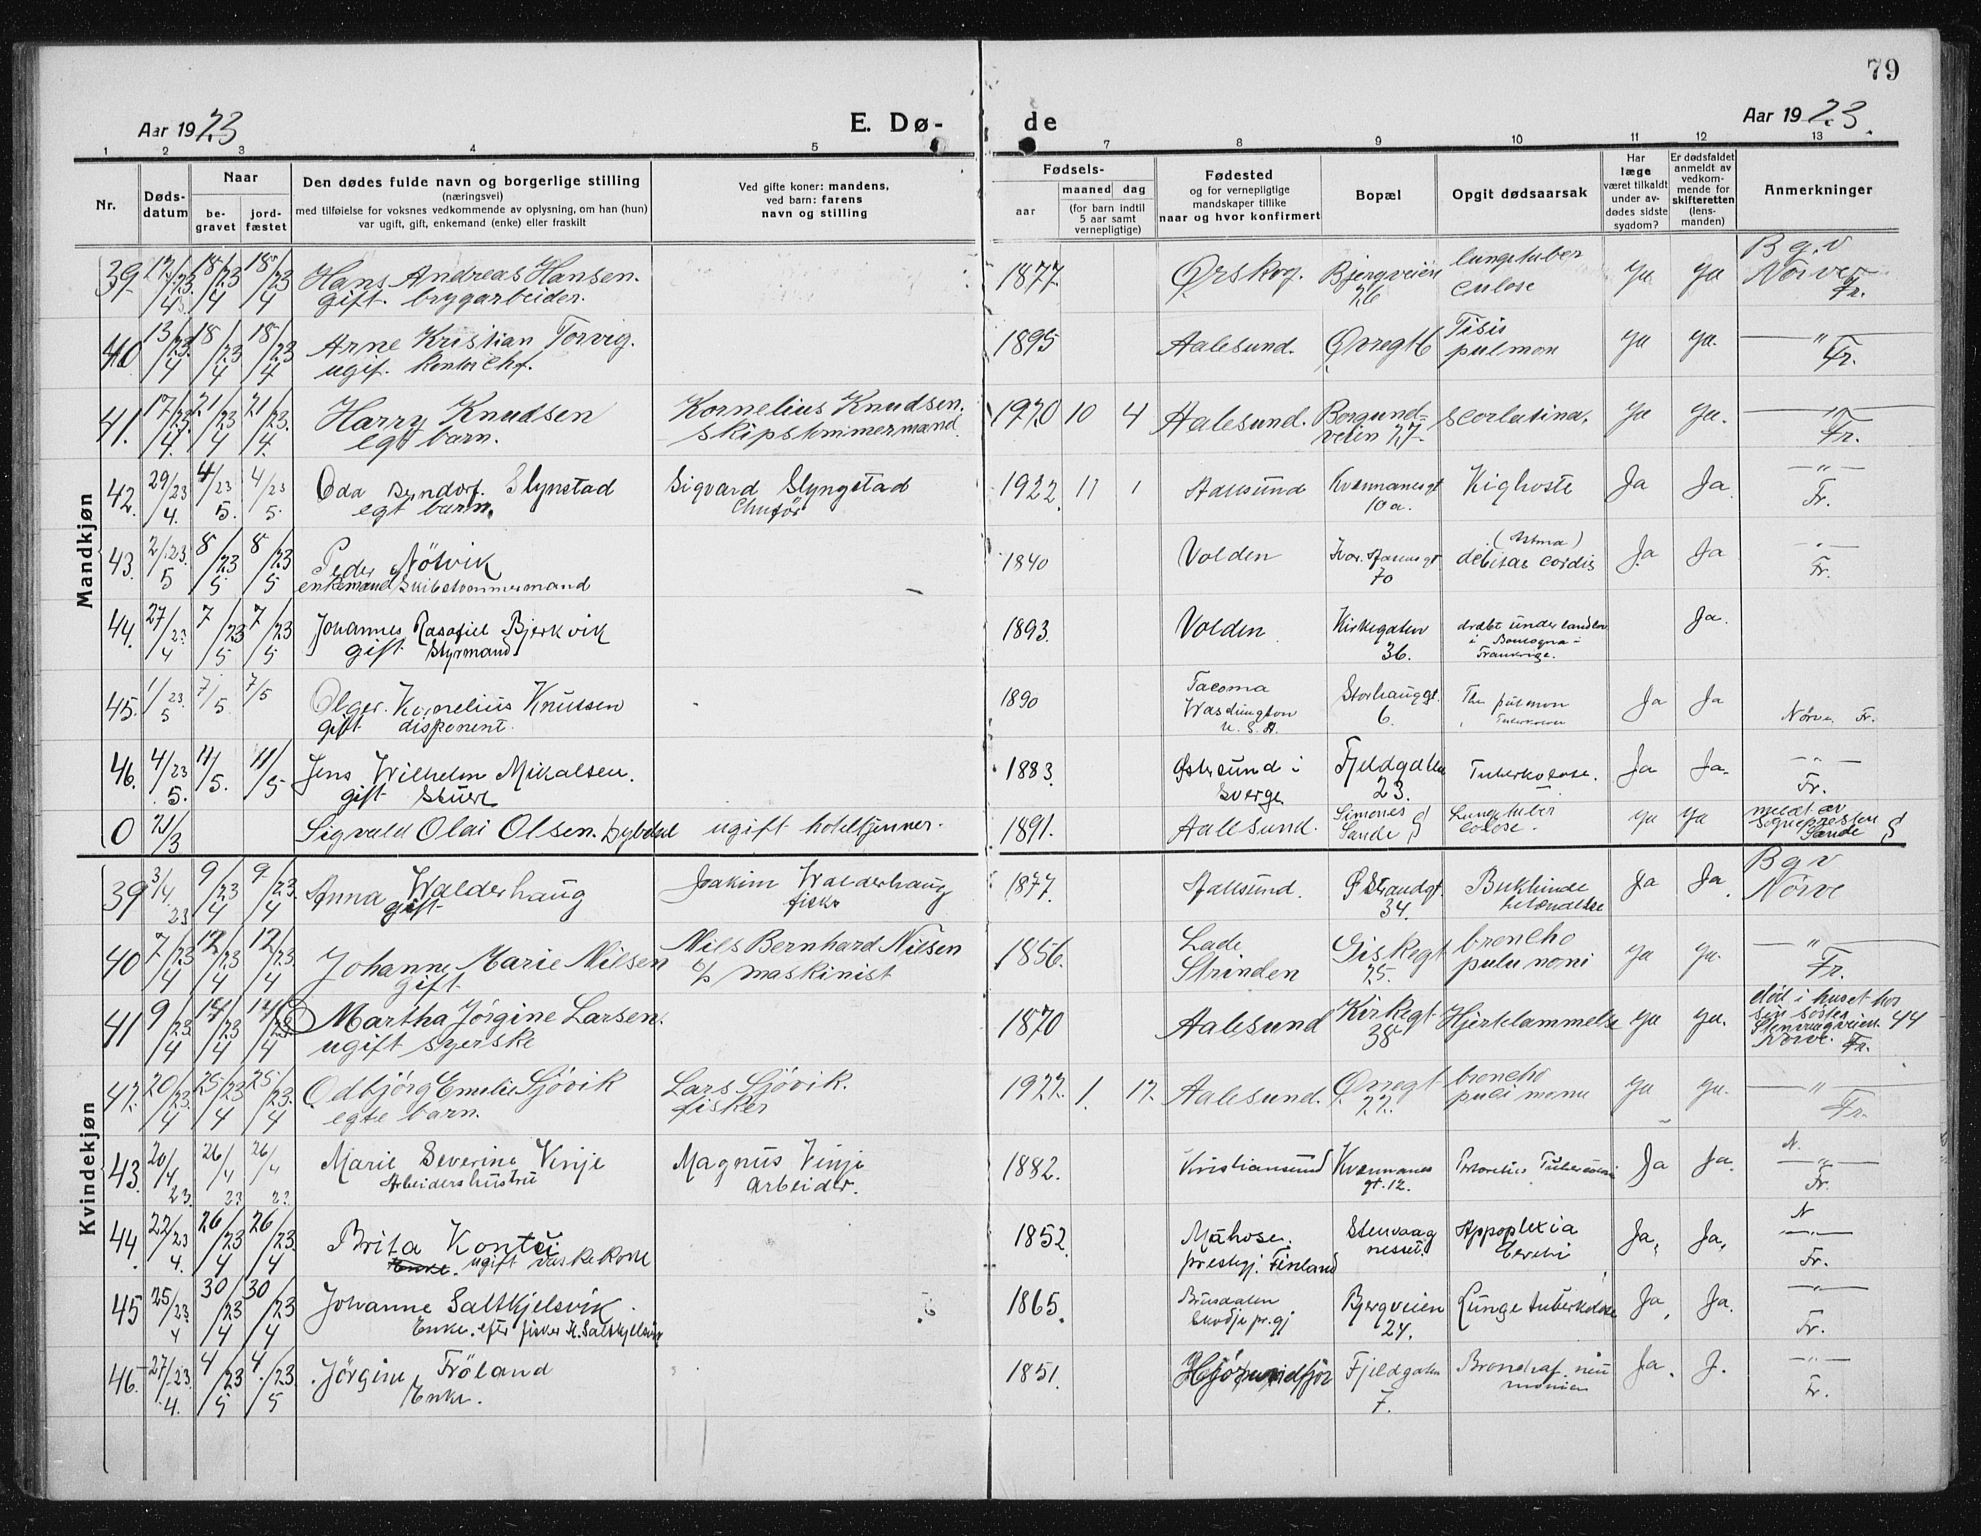 79
Aar 1923
E. Dø-
de
Aar 1923.
1 2 3 4 5 7 8 9 10 11 12 13
Nr.
Døds-
datum
Naar
be-
gravet
jord-
fæstet
Den dødes fulde navn og borgerlige stilling
(næringsvei)
med tilføielse for voksnes vedkommende av oplysning, om han (hun)
var ugift, gift, enkemand (enke) eller fraskilt
Ved gifte koner: mandens,
ved barn: farens
navn og stilling
Fødsels-
aar
maaned dag
(for barn indtil
5 aar samt
vernepligtige)
Fødested
og for vernepligtige
mandskaper tillike
naar og hvor konfirmert
Bopæl
Opgit dødsaarsak
Har
læge
været tilkaldt
under av-
dødes sidste
sygdom?
Er dødsfaldet
anmeldt av
vedkom-
mende for
skifteretten
(lens-
manden)
Anmerkninger
Mandkjøn
39 12/4 23. 18/4 23 18/4 23 Hans Andreas Hansen. 1877. Ørskog. Bjergveien lungetuber ja ja B g. v
gift. brygarbeider. 26 culose Nørve Fr.
40 13/4 23. 18/4 23 18/4 23 Arne Kristian Torvig. 1895 Aalesund. Øvregt 6 Tisis ja ja. — " —
ugif. kontorchf. pulmon Fr.
41. 17/4 23. 21/4 23 21/4 23. Harry Knudsen Kornelius Knudsen. 1920 10 4 Aalesund. Borgund- scarlatina. ja ja. — " —
egt barn. skipstømmermand veien 27. Fr.
42. 29/4 23 4/5 23 4/5 23 Oda Slynstad Sigvard Slyngstad 1922 11 1 Aalesund Kvennanesgt Kighoste Ja Ja — " —
egt barn. Chufør 10 a. Fr.
43. 2/5 23. 8/5 23 8/5 23 Peder Nötvik 1840 Volden 70 (Astma) debitas cordis Ja Ja — " —
enkemand Skibstømmermand Fr.
44. 27/4 23 7/5 23 7/5 23 Johannes Bjerkvik 1893. Volden Kirkegaten dræbt under landlov Ja.
gift Styrmand 36. i Boulogna i
Frankrige.
45. 1/5 23 7/5 7/5 Olger Kornelius Knutsen 1890 Tacoma Storhauggt. pulmon Ja Ja
gift disponent. Wasdington 6. Tuberkolose Nørve Fr.
U. S. A.
46. 4/5 23 11/5. 11/5 Jens Wilhelm Mikalsen. 1883. Østersund i Fjeldgaten Tuberkolose. Ja Ja. — " —
gift Stuert Sverge 23. Fr.
0 21/3 Sigvald Olai Olsen. Dybdal ugift hoteltjenner. 1891. Aalesund. Simones Lungetuber ja ja meldt av
Sande colose. Sognepresten
Sande
Kvindekjøn
39 3/4. 23 9/4 23 9/4 23. Anna Walderhaug Joakim Walderhaug 1877. Aalesund. Ø Strandgt. Bukhinde Ja Ja. B g v
gift fisker 34. betændelse Nørve
40 7/4 23. 12/4 23 12/4 23. Johanne Marie Nilsen Nils Bernhard Nilsen 1856. Lade Giskegt broncho ja ja. — " —
gift maskinist Strinden 25. pulu moni Fr.
41 9/4 23. 14/4 23 14/4 23. Martha Jørgine Larsen. 1870 Aalesund Kirkegt Hjertelammelse ja ja. død i huset hos
ugift syerske 38 sin søster
Stenvaagveien 44
Nørve. Fr.
42. 20/4 23. 25/4 23 25/4 23. Odbjørg Emelie Sjövik Lars Sjövik. 1922. 1. 12. Aalesund. Øvregt broncho ja ja. — " —
egte barn. fisker 22. Fr.
43. 20/4 23. 26/4 23 26/4 23 Marie Severine Vinje Magnus Vinje 1882. Kristiansund Kvennanes Ja Ja. N.
Arbeiders hustru Arbeider. gt. 12. — " —
Fr.
44. 22/4. 23 26/4 23 26/4 23. Brita 1852. Stenvaag Appoplexia Ja, Ja, N
Enke. ugift vaskekone prestgj. Finland nesset — " —
Fr.
45 25/4 23 30/4 23 30/4 23 Johanne Saltkjelsvik 1865. Brusdalen Bjergveien Lungetuberkulose Ja, Ja. — " —
Enke. efter fisker K. Saltkjelsvik Skodje pr.gj 24. Fr.
46. 27/4. 23. 4/5 23 4/5 23 Jörgine Fröland 1851. Hjörundfjör Fjeldgaten Ja. J. — " —
Enke. 7. Fr.